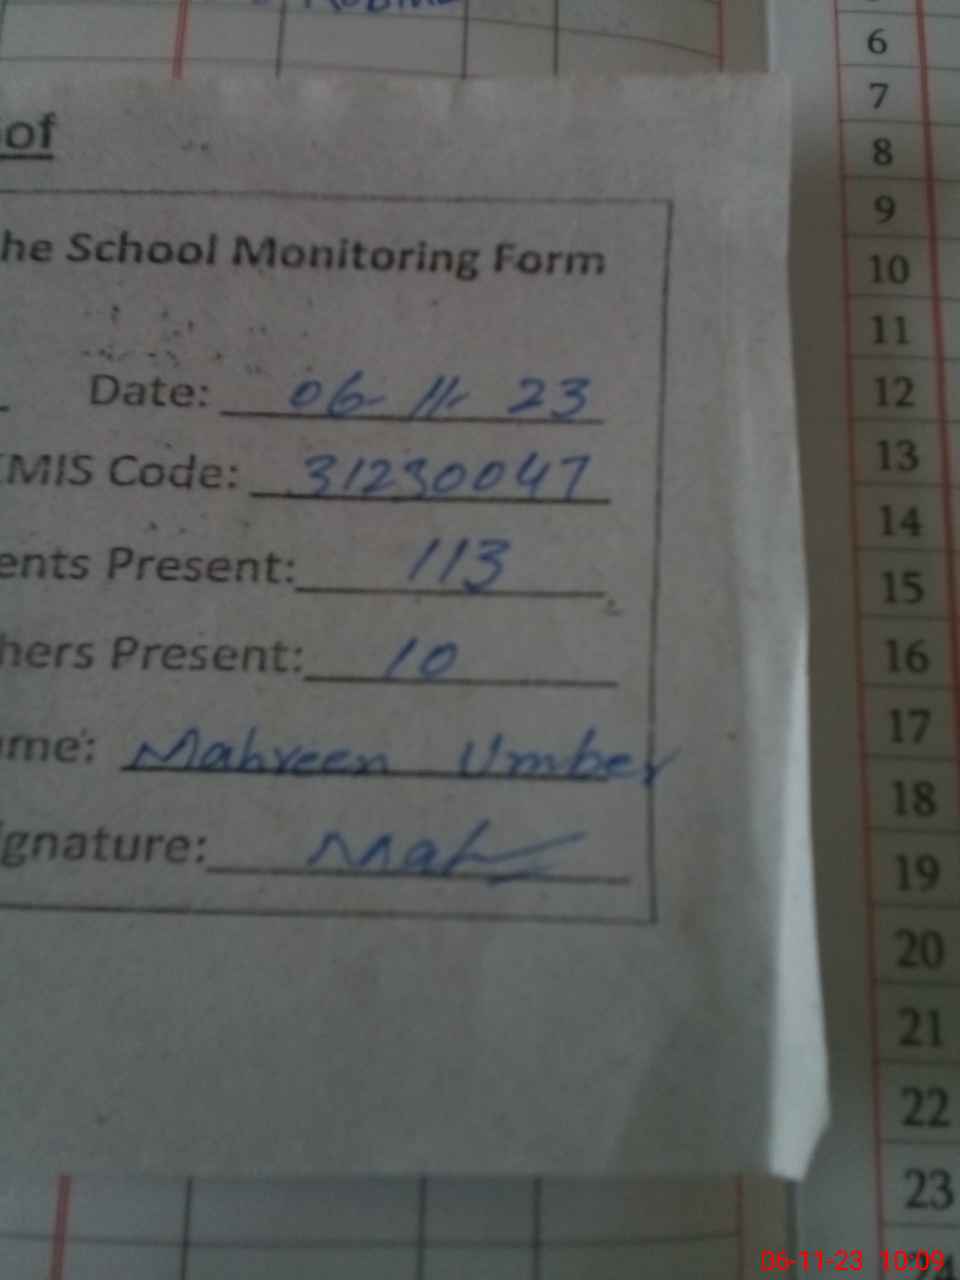 of
he School Monitoring Form
Date: 06-11-23
EMIS Code: 31230047
ents Present: 113
hers Present: 10
ame: Mahreen Umber
ignature: Mah
6
7
8
9
10
11
12
13
14
15
16
17
18
19
20
21
22
23
24
06-11-23 10:09